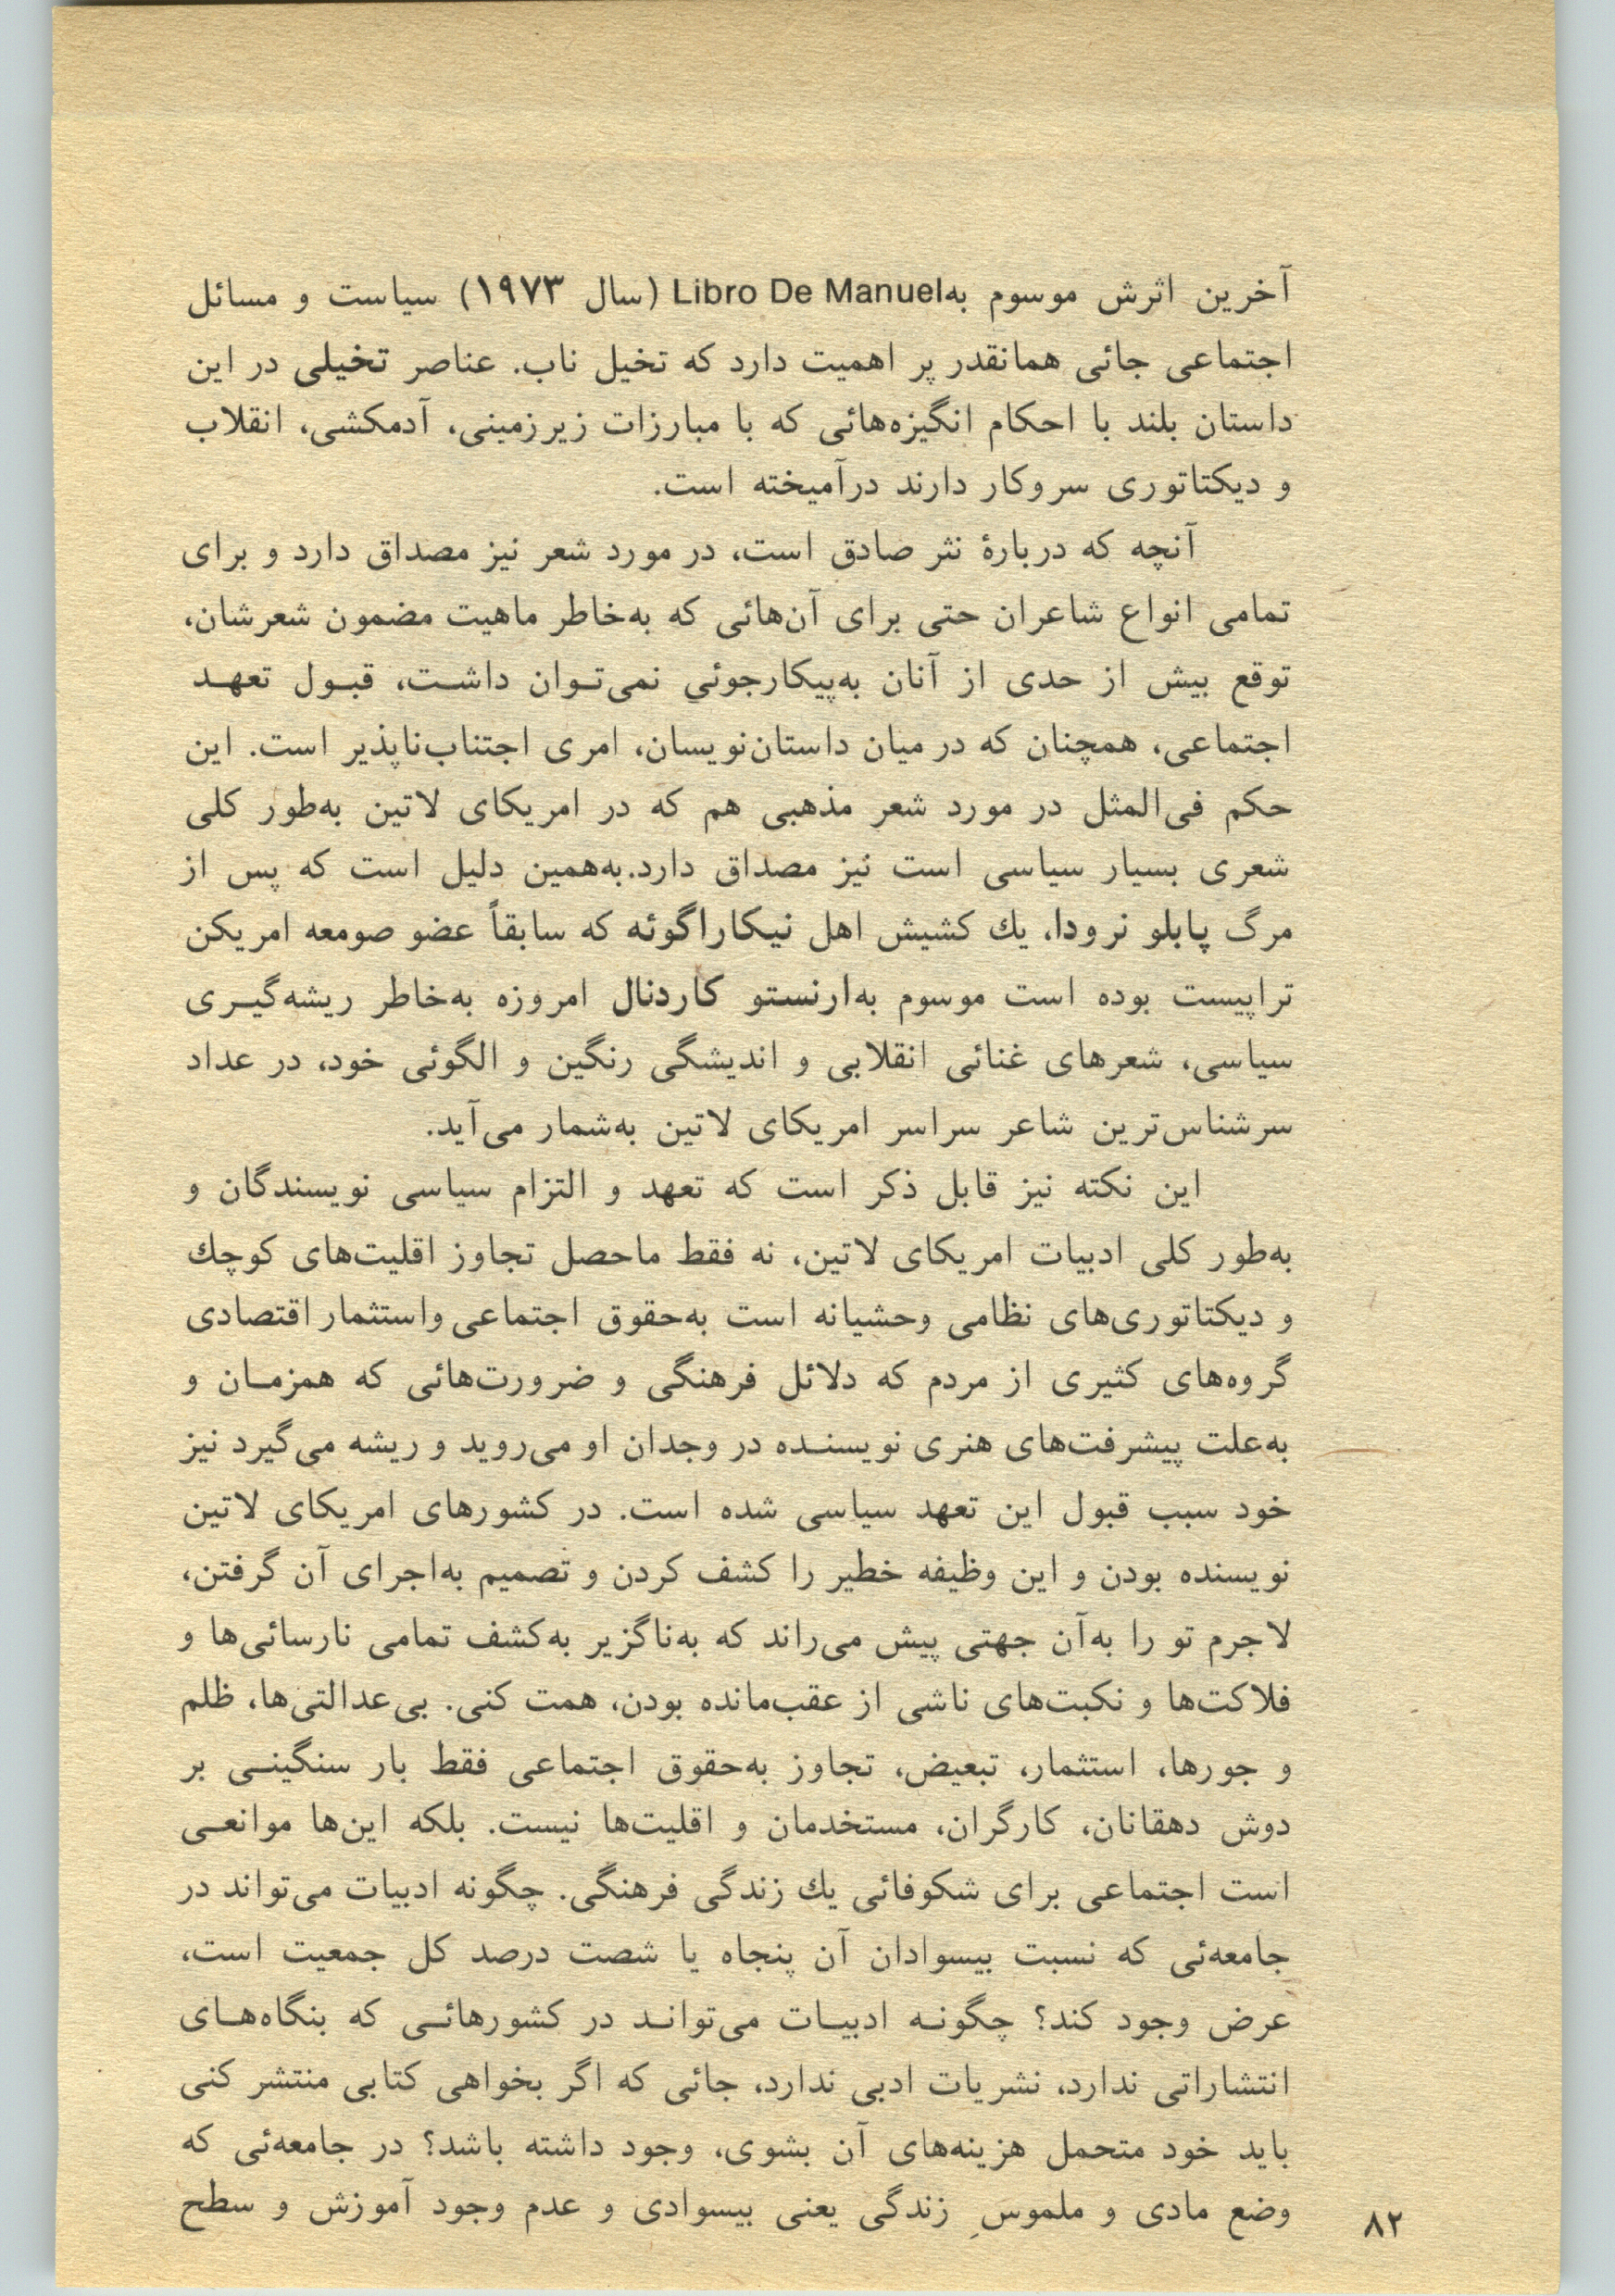 آخرین اثرش موسوم به‌Libro De Manuel (سال ۱۹۷۳) سیاست و مسائل
اجتماعی جائی همانقدر پر اهمیت دارد که تخیل ناب. عناصر تخیلی در این
داستان بلند با احکام انگیزه‌هائی که با مبارزات زیرزمینی، آدمکشی، انقلاب
و دیکتاتوری سروکار دارند درآمیخته است.
آنچه که دربارهٔ نثر صادق است، در مورد شعر نیز مصداق دارد و برای
تمامی انواع شاعران حتی برای آن‌هائی که به‌خاطر ماهیت مضمون شعرشان،
توقع بیش از حدی از آنان به‌پیکارجوئی نمی‌توان داشت، قبول تعهد
اجتماعی، همچنان که در میان داستان‌نویسان، امری اجتناب‌ناپذیر است. این
حکم فی‌المثل در مورد شعر مذهبی هم که در امریکای لاتین به‌طور کلی
شعری بسیار سیاسی است نیز مصداق دارد.به‌همین دلیل است که پس از
مرگ پابلو نرودا، یك کشیش اهل نیکاراگوئه که سابقاً عضو صومعه امریکن
تراپیست بوده است موسوم به‌ارنستو کاردنال امروزه به‌خاطر ریشه‌گیری
سیاسی، شعرهای غنائی انقلابی و اندیشگی رنگین و الگوئی خود، در عداد
سرشناس‌ترین شاعر سراسر امریکای لاتین به‌شمار می‌آید.
این نکته نیز قابل ذکر است که تعهد و التزام سیاسی نویسندگان و
به‌طور کلی ادبیات امریکای لاتین، نه فقط ماحصل تجاوز اقلیت‌های کوچك
و دیکتاتوری‌های نظامی وحشیانه است به‌حقوق اجتماعی واستثمار اقتصادی
گروه‌های کثیری از مردم که دلائل فرهنگی و ضرورت‌هائی که همزمان و
به‌علت پیشرفت‌های هنری نویسنده در وجدان او می‌روید و ریشه می‌گیرد نیز
خود سبب قبول این تعهد سیاسی شده است. در کشورهای امریکای لاتین
نویسنده بودن و این وظیفه خطیر را کشف کردن و تصمیم به‌اجرای آن گرفتن،
لاجرم تو را به‌آن جهتی پیش می‌راند که به‌ناگزیر به‌کشف تمامی نارسائی‌ها و
فلاکت‌ها و نکبت‌های ناشی از عقب‌مانده بودن، همت کنی. بی‌عدالتی‌ها، ظلم
و جورها، استثمار، تبعیض، تجاوز به‌حقوق اجتماعی فقط بار سنگینی بر
دوش دهقانان، کارگران، مستخدمان و اقلیت‌ها نیست. بلکه این‌ها موانعی
است اجتماعی برای شکوفائی یك زندگی فرهنگی. چگونه ادبیات می‌تواند در
جامعه‌ئی که نسبت بیسوادان آن پنجاه یا شصت درصد کل جمعیت است،
عرض وجود کند؟ چگونه ادبیات می‌تواند در کشورهائی که بنگاه‌های
انتشاراتی ندارد، نشریات ادبی ندارد، جائی که اگر بخواهی کتابی منتشر کنی
باید خود متحمل هزینه‌های آن بشوی، وجود داشته باشد؟ در جامعه‌ئی که
وضع مادی و ملموسِ زندگی یعنی بیسوادی و عدم وجود آموزش و سطح
۸۲